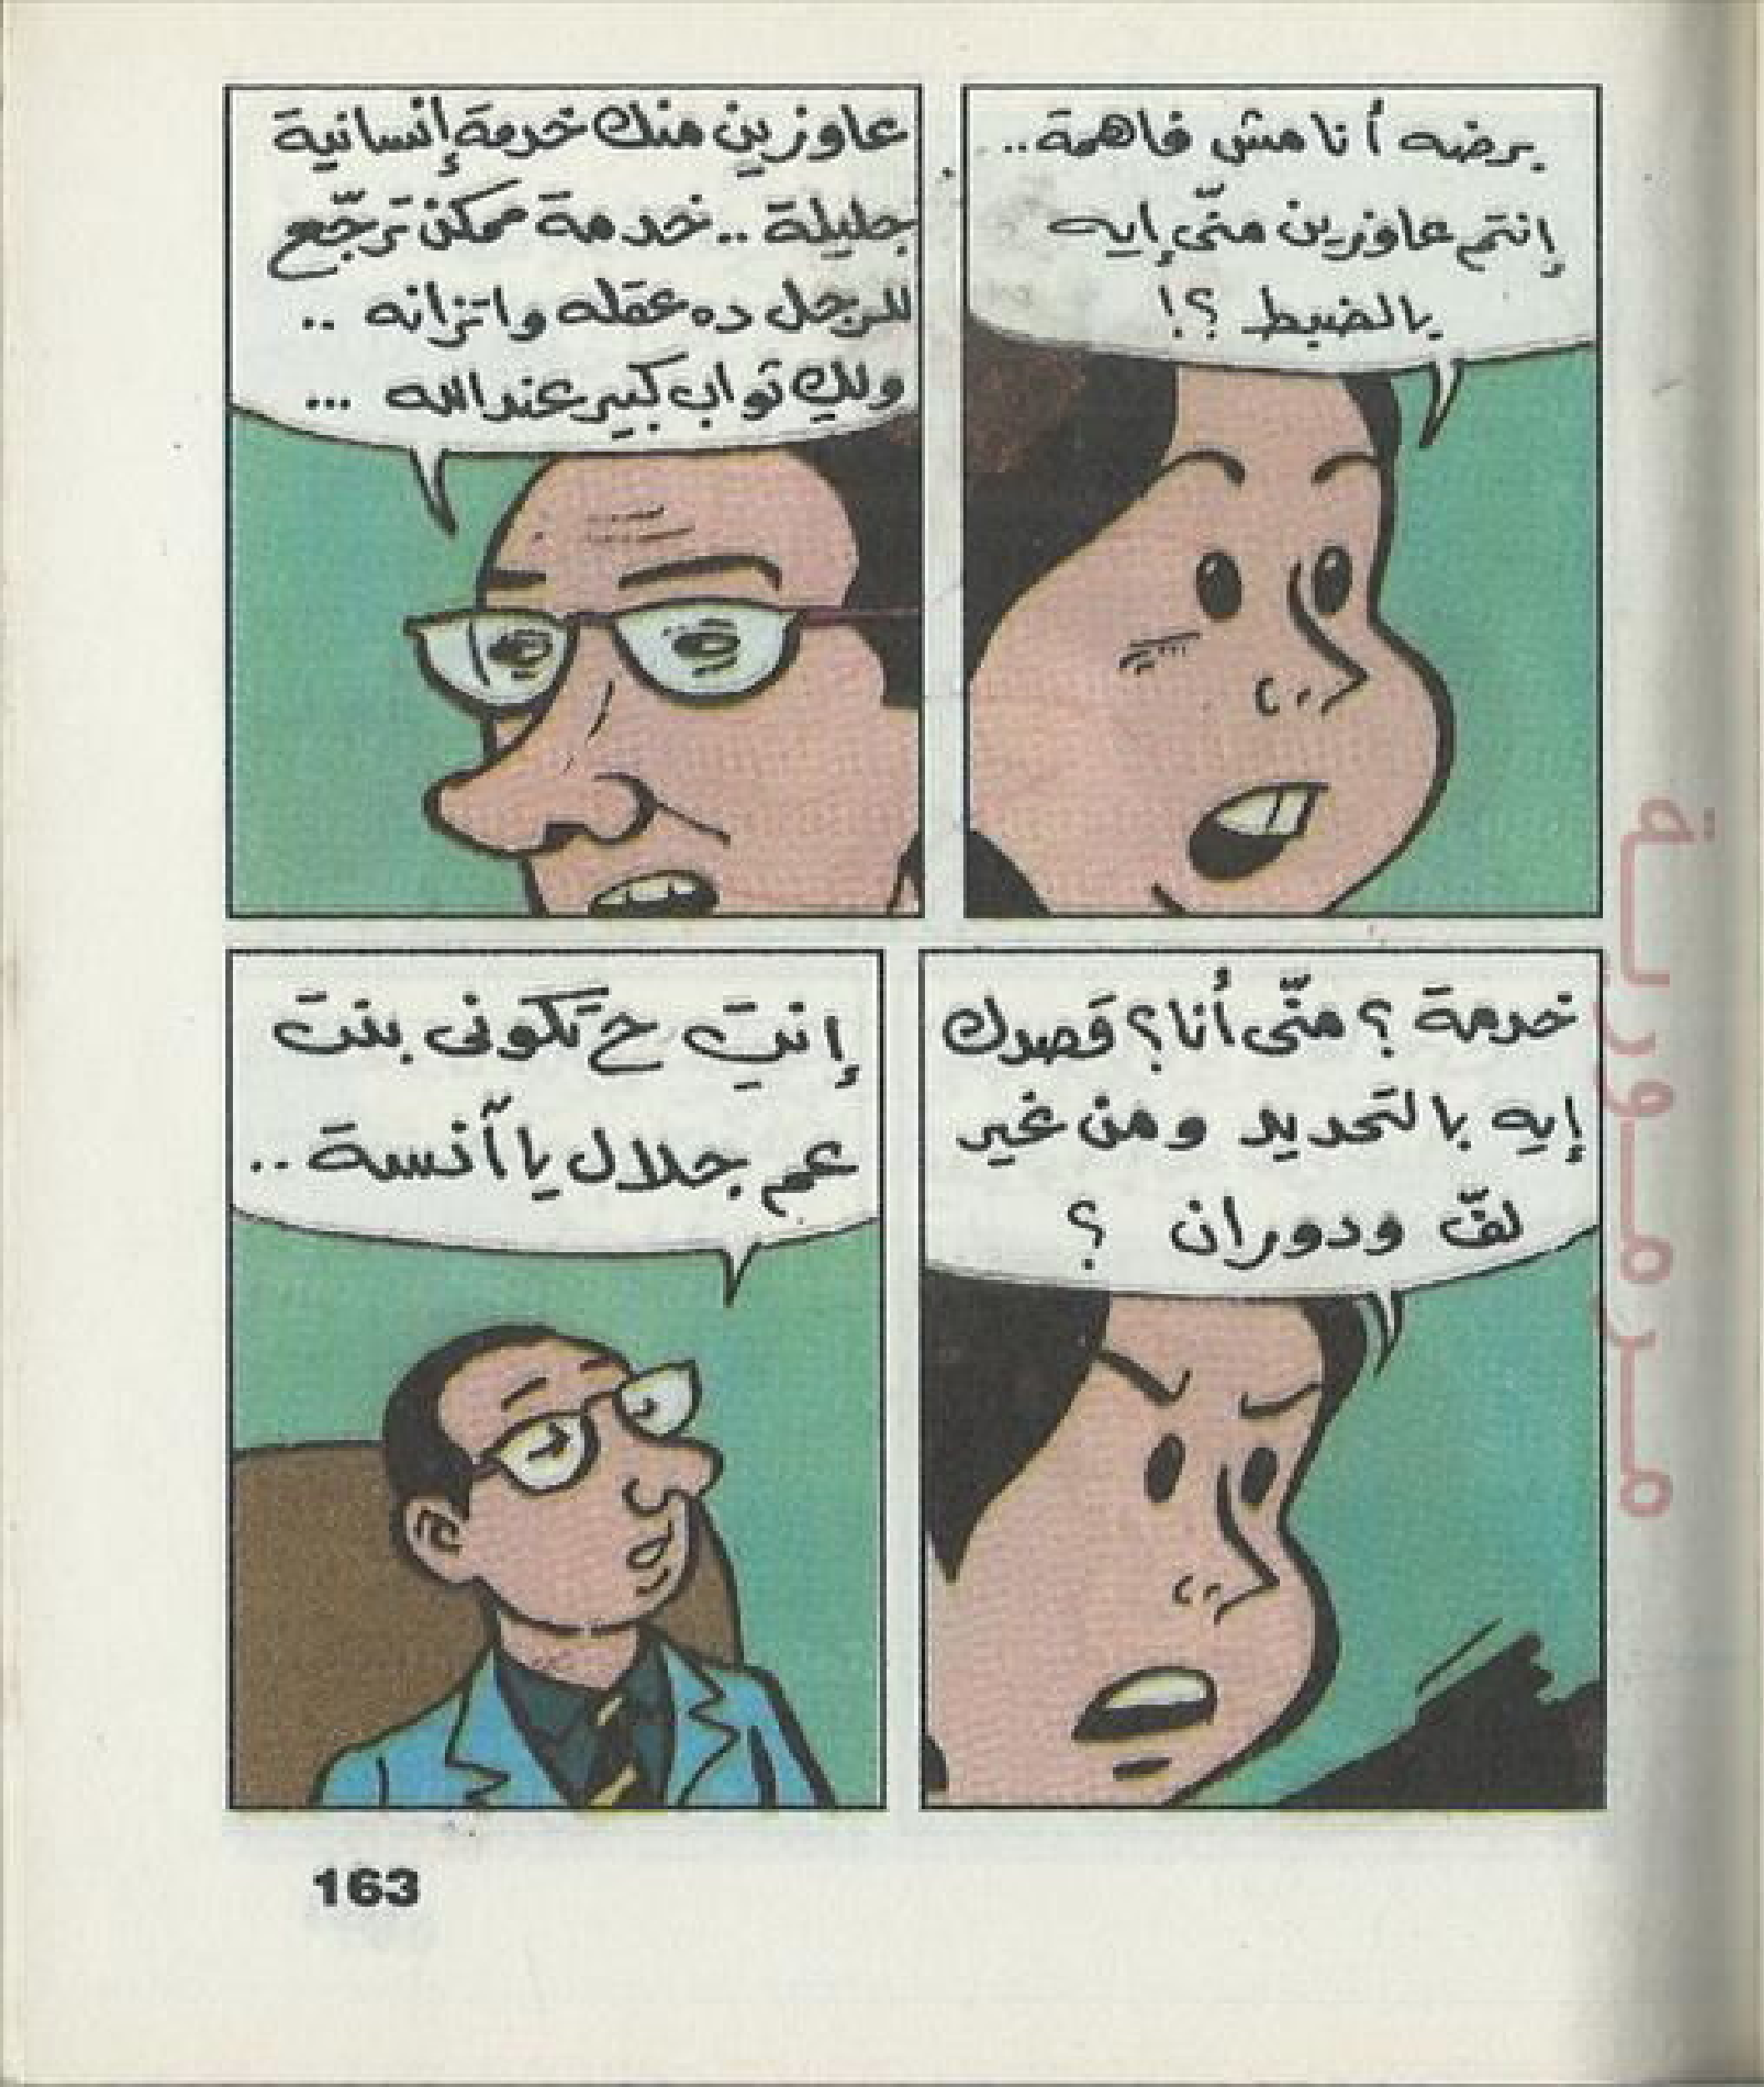 برضه أنا مش فاهمة..
إنتم عاوزين منّى إيه
بالضبط ؟!
عاوزين منك خدمة إنسانية
جليلة .. خدمة ممكن ترجّع
للرجل ده عقله واتزانه ..
ولكِ ثواب كبير عند الله ...
خدمة ؟ منّى أنا ؟ قصدك
إيه بالتحديد ومن غير
لفّ ودوران ؟
إنتِ ح تكونى بنت
عم جلال يا آنسة ..
163
مرمورية